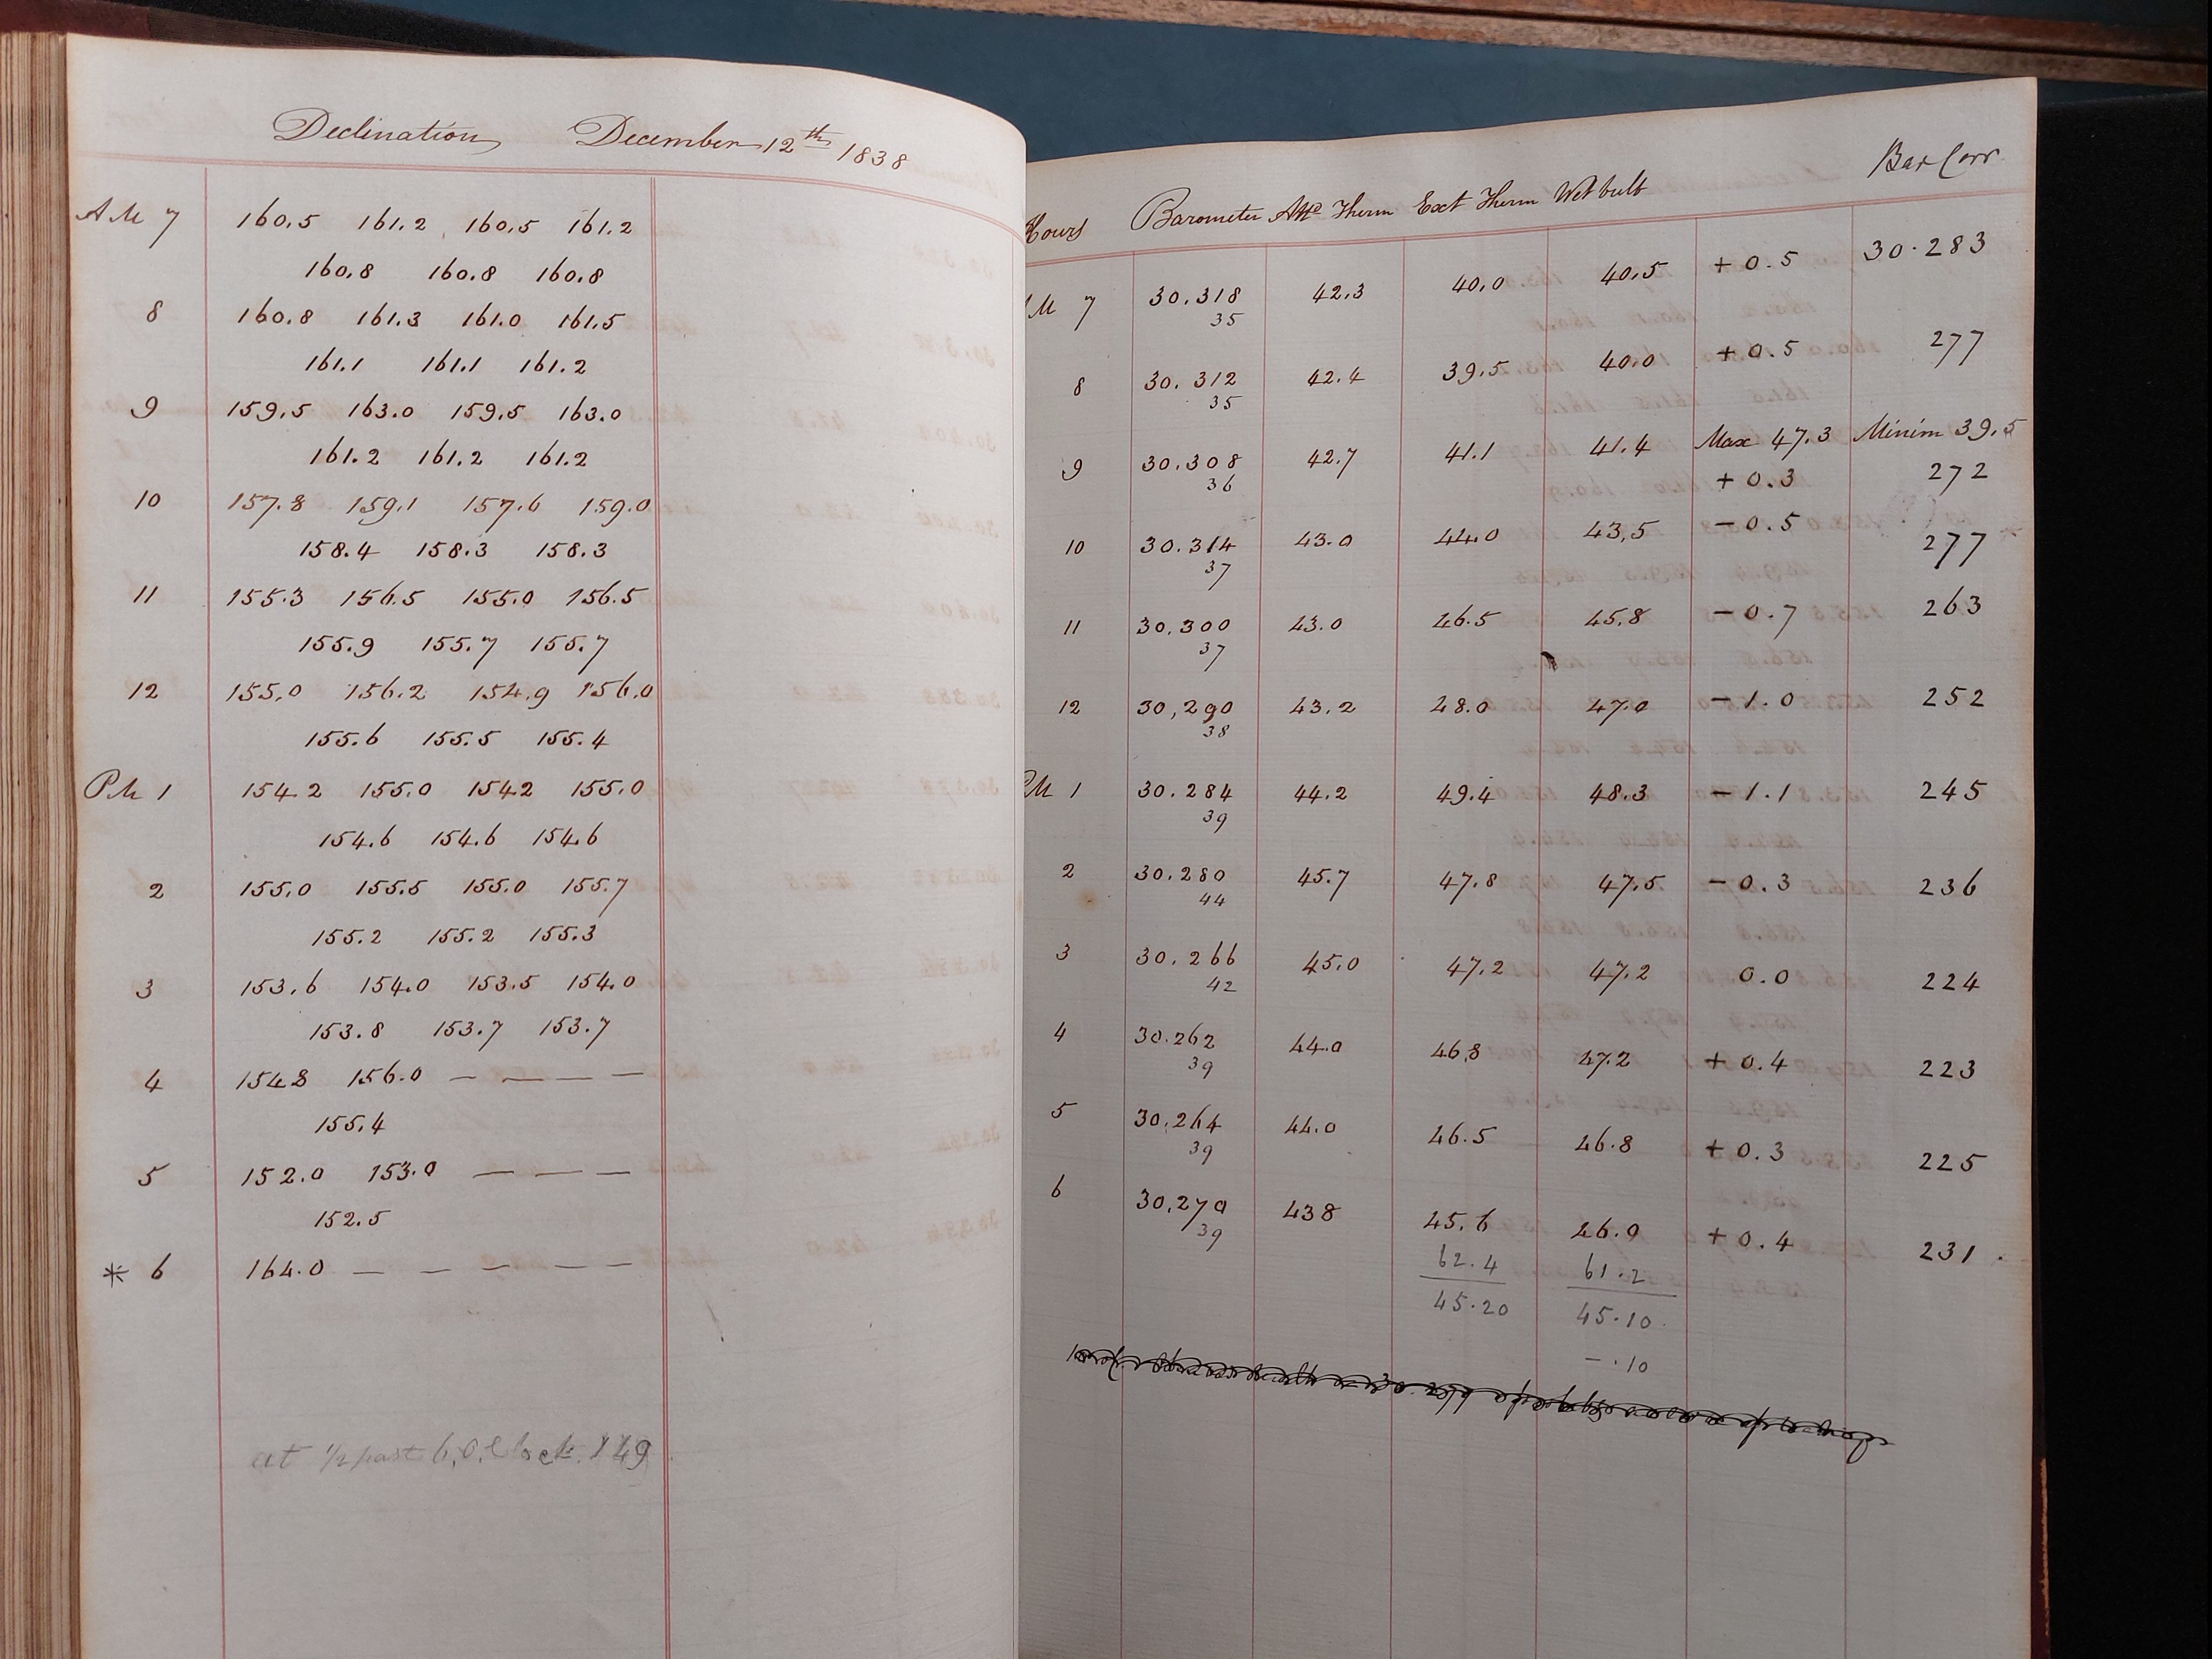 Declination December 12th 1838
AM 7 160.5 161.2 160.5 161.2
160.8 160.8 160.8
8 160.8 161.3 161.0 161.5
161.1 161.1 161.2
9 159.5 163.0 159.5 163.0
161.2 161.2 161.2
10 157.8 159.1 157.6 159.0
158.4 158.3 158.3
11 155.3 156.5 155.0 156.5
155.9 155.7 155.7
12 155.0 156.2 154.9 156.0
155.6 155.5 155.4
PM 1 154.2 155.0 154.2 155.0
154.6 154.6 154.6
2 155.0 155.5 155.0 155.7
155.2 155.2 155.3
3 153.6 154.0 153.5 154.0
153.8 153.7 153.7
4 154.8 156.0 — — — —
155.4
5 152.0 153.0 — — —
152.5
* 6 164.0 — — — — —
at 1/2 past 6,O,Clock. 149
Bar Corr
Hours Barometer Attd Therm Ext Therm Wet bulb
M 7 30.318 42.3 40.0 40.5 + 0.5 30.283
35
8 30.312 42.4 39.5 40.0 + 0.5 277
35
Max 47.3 Minim 39.5
9 30.308 42.7 41.1 41.4 + 0.3 272
36
10 30.314 43.0 44.0 43.5 - 0.5 277
37
11 30.300 43.0 46.5 45.8 - 0.7 263
37
12 30.290 43.2 48.0 47.0 - 1.0 252
38
PM 1 30.284 44.2 49.4 48.3 - 1.1 245
39
2 30.280 45.7 47.8 47.5 - 0.3 236
44
3 30.266 45.0 47.2 47.2 0.0 224
42
4 30.262 44.0 46.8 47.2 + 0.4 223
39
5 30.264 44.0 46.5 46.8 + 0.3 225
39
6 30.270 43.8 45.6 46.0 + 0.4 231
39
62.4 61.2
45.20 45.10
- .10